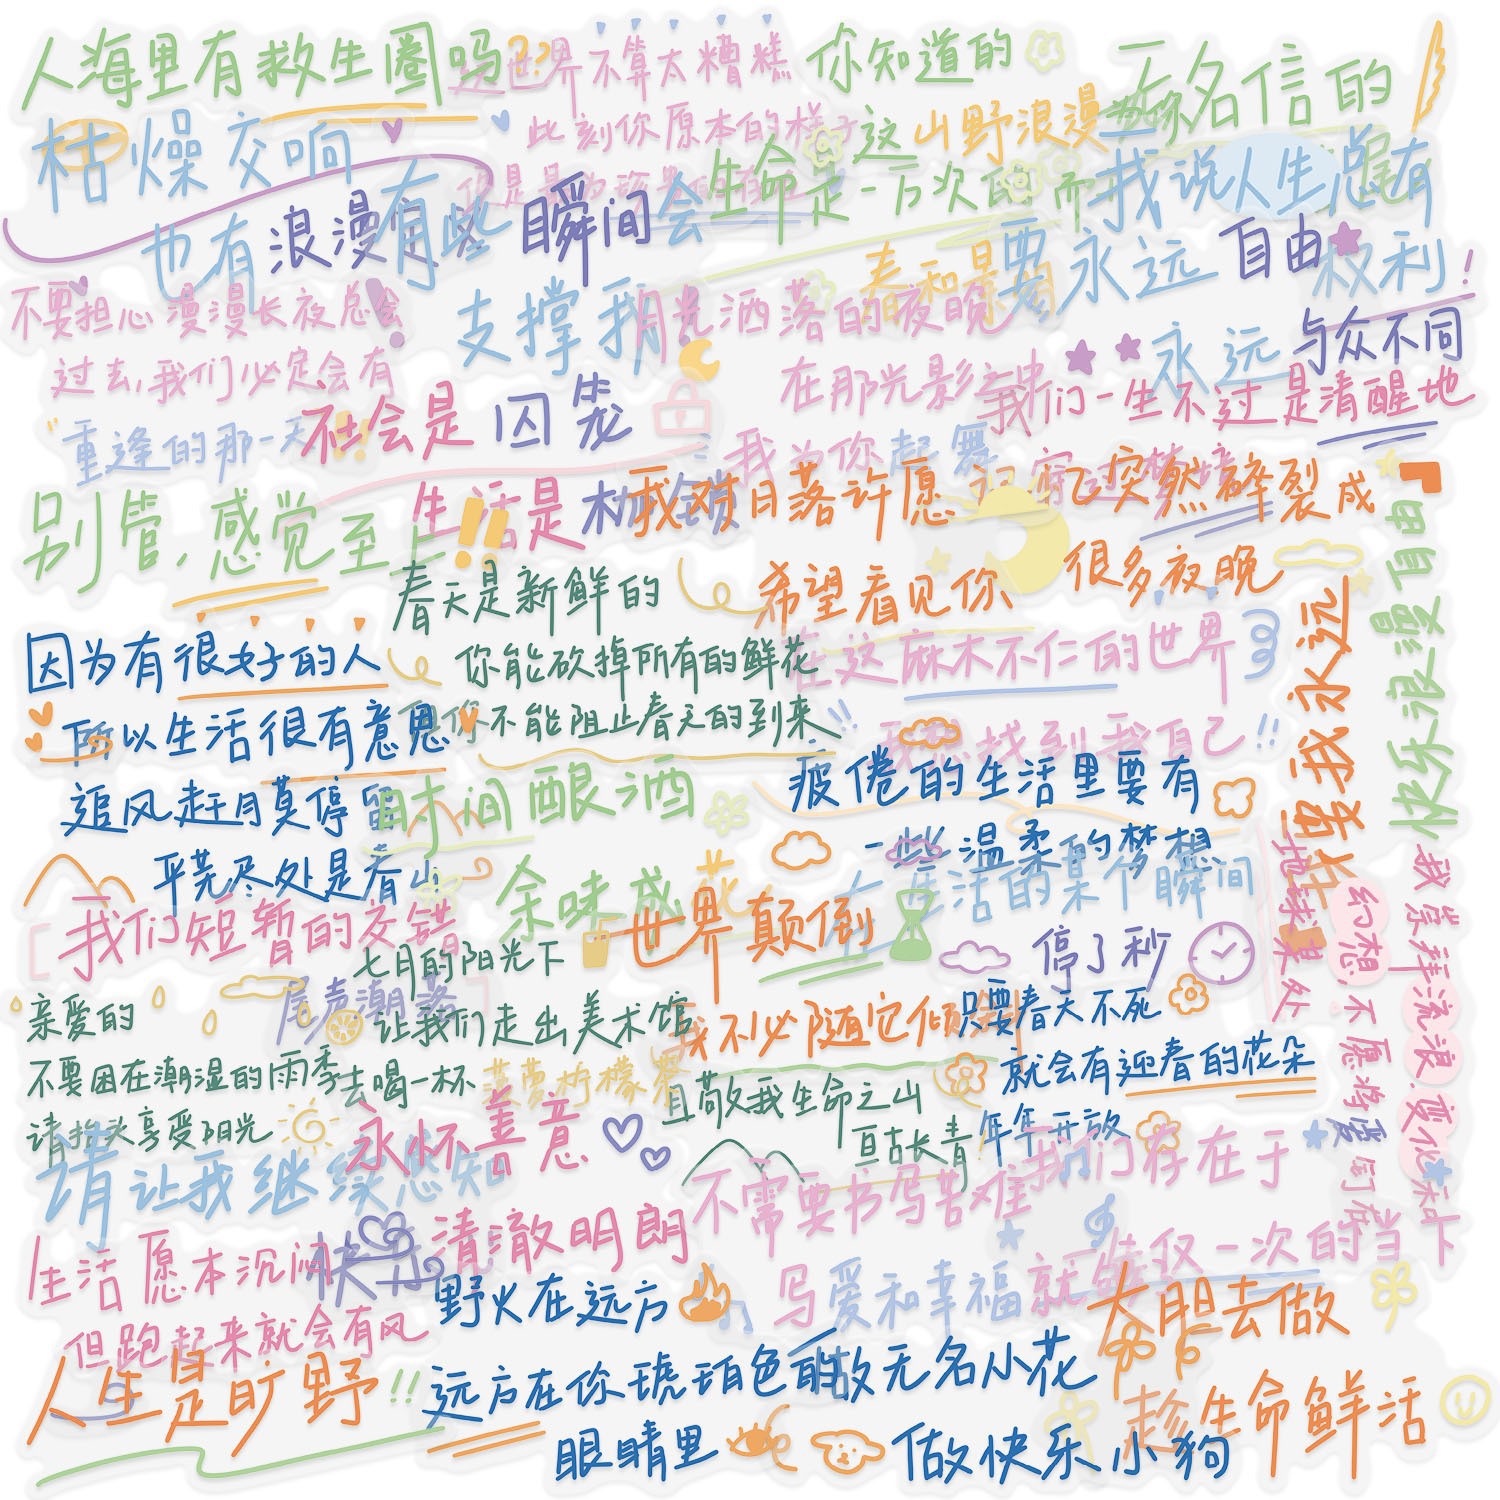 人海里有救生圈吗??
这世界不算太糟糕
你知道的
此刻你原本的样子
枯燥交响
也有浪漫
这山野浪漫
为你名信的
生命是一万次的
有些瞬间会
支撑我
我说人生总有
要永远自由
权利!
永远与众不同
不要担心漫漫长夜总会
过去,我们必定会有
重逢的那一天!!
月光洒落的夜晚
在那光影之中
我为你起舞
社会是囚笼
生活是枷锁
我们一生不过是清醒地
穿过梦境
别管,感觉至上!!
我对月落许愿
突然碎裂成
希望看见你
很多夜晚
快乐浪漫自由
我永远
春天是新鲜的
你能砍掉所有的鲜花
但你不能阻止春天的到来
因为有很好的人
所以生活很有意思
在这麻木不仁的世界
我想找到我自己!!
追风赶月莫停留
平芜尽处是春山
时间酿酒
余味成花
疲倦的生活里要有
一些温柔的梦想
生活的某个瞬间
停了秒
我们短暂的交错
尾声潮落
世界颠倒
我不必随它倾
地球某处
幻想,不愿将
我崇拜流浪,变化和
七月的阳光下
让我们走出美术馆
去喝一杯菠萝柠檬茶
亲爱的
不要困在潮湿的雨季
请抬头享受阳光
只要春天不死
就会有迎春的花朵
年年开放
且敬我生命之山
亘古长青
请让我继续感知
永怀善意
清澈明朗
快乐
不需要书写苦难
写爱和幸福就
我们存在于
仅仅一次的当下
生活愿本沉闷
但跑起来就会有风
人生是旷野!!
野火在远方
远方在你琥珀色的
眼睛里
大胆去做
趁生命鲜活
做无名小花
做快乐小狗